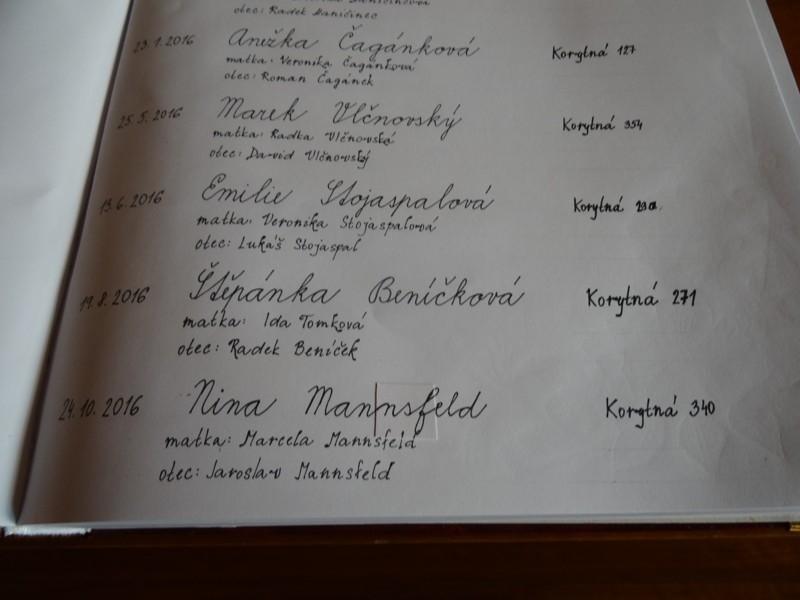 otec: Radek Haničinec
23.1.2016 Anežka Čagánková Korytná 127
matka: Veronika Čagánková
otec: Roman Čagánek
25.5.2016 Marek Vlčnovský Korytná 354
matka: Radka Vlčnovská
otec: David Vlčnovský
13.6.2016 Emilie Stojaspalová Korytná
matka: Veronika Stojaspalová
otec: Lukáš Stojaspal
19.8.2016 Štěpánka Beníčková Korytná 271
matka: Ida Tomková
otec: Radek Beníček
24.10.2016 Nina Mannsfeld Korytná 340
matka: Marcela Mannsfeld
otec: Jaroslav Mannsfeld